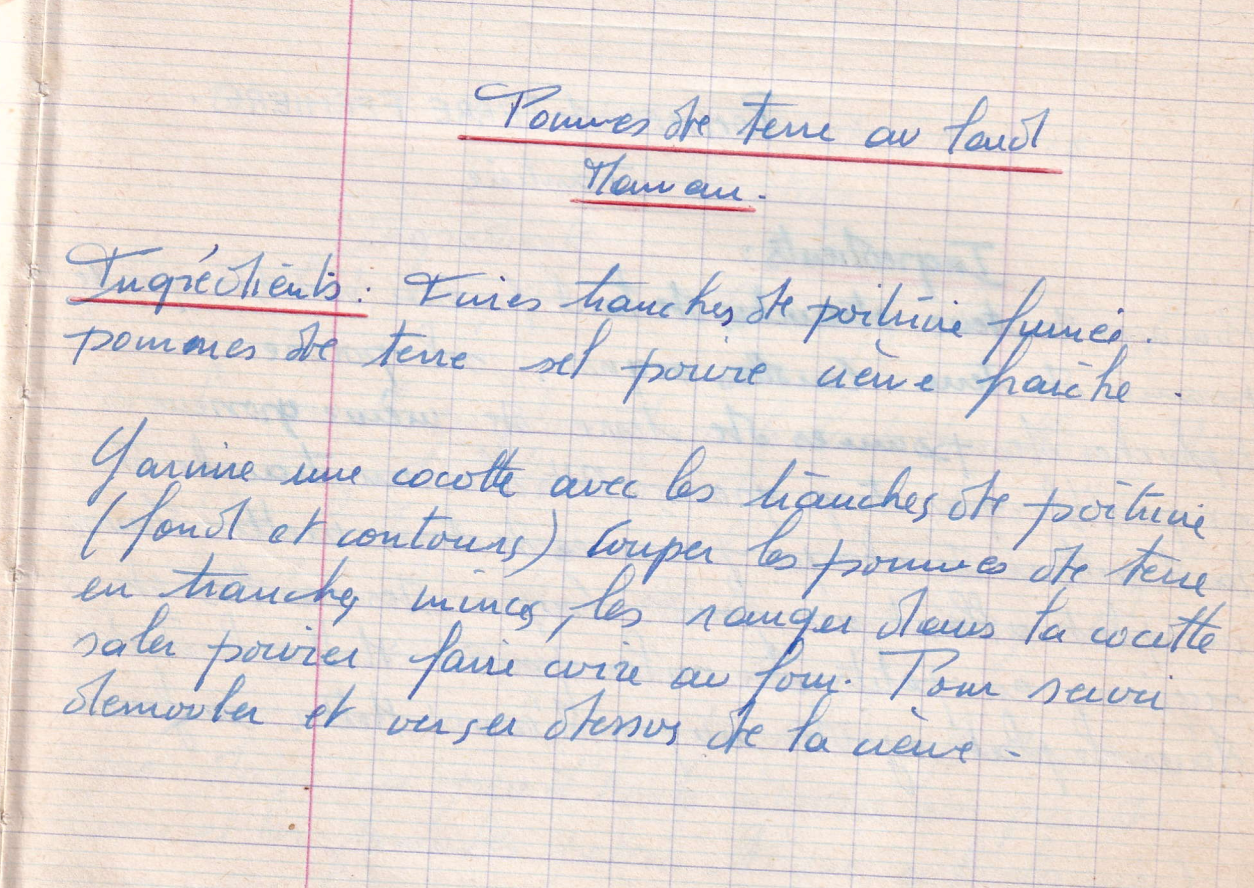 Pommes de terre au lard
Maman.
Ingrédients : Fines tranches de poitrine fumée.
pommes de terre sel poivre crème fraîche.
Garnir une cocotte avec les tranches de poitrine
(fond et contours) Couper les pommes de terre
en tranches minces, les ranger dans la cocotte
saler poivrer faire cuire au four. Pour servir
demouler et verser dessus de la crème.